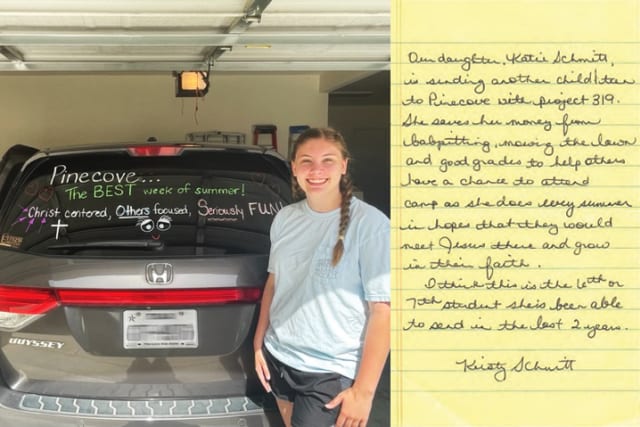 Pinecove...
The BEST week of summer!
Christ centered, Others focused, Seriously FUN
ODYSSEY
Our daughter, Katie Schmitt,
is sending another child/teen
to Pinecove with project 319.
She saves her money from
babysitting, mowing the lawn
and good grades to help others
have a chance to attend
camp as she does every summer
in hopes that they would
meet Jesus there and grow
in their faith.
I think this is the 6th or
7th student she's been able
to send in the last 2 years.
Kristy Schmitt